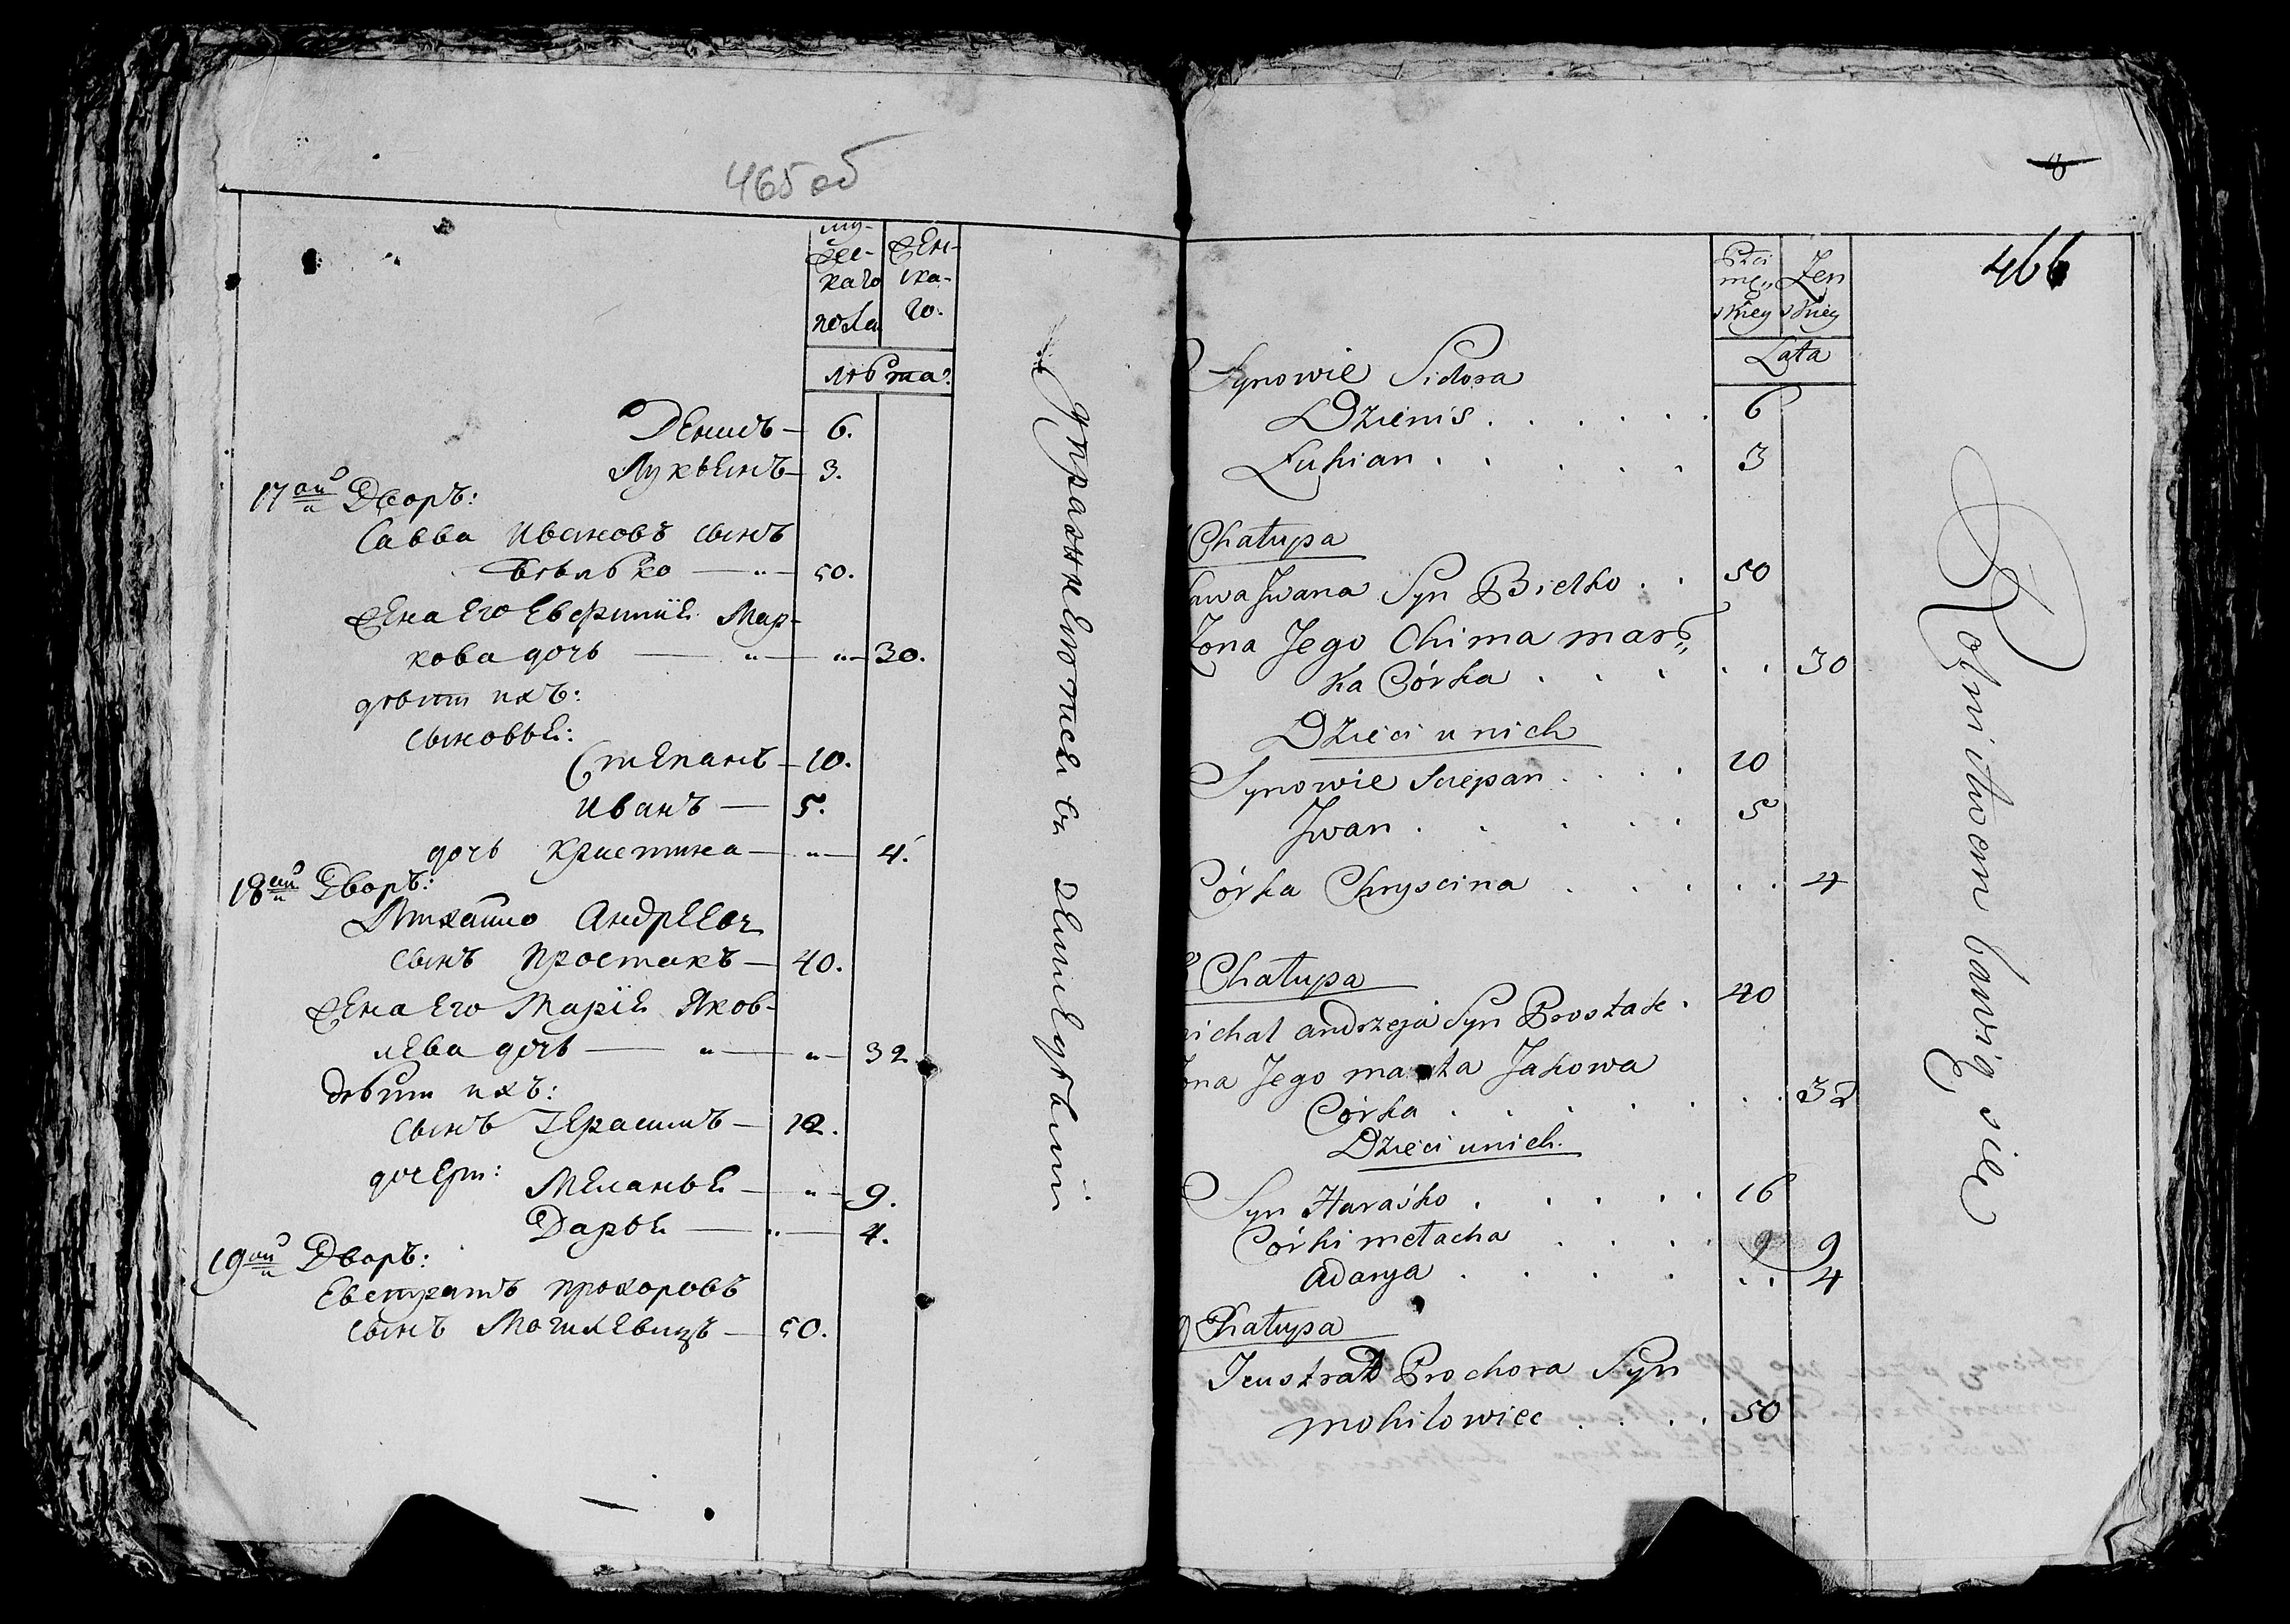 465 об
му-
жес-
каго
пола
жен-
ска-
го.
лѣта.
Денисъ — 6.
Лукьянъ — 3.
17ой Дворъ:
Савва Ивановъ сынъ
Бѣлько — " — 50.
жена его Евфимия Мар-
кова дочь — " — " — 30.
дѣти ихъ:
сыновья:
Степанъ — 10.
Иванъ — 5.
дочь Кристина — " — 4.
18ой Дворъ:
Михайло Андреевъ
сынъ Простакъ — 40.
жена его Марія Яков-
лева дочь — " — " — 32
дѣти ихъ:
сынъ Герасимъ — 12.
дочери: Меланья — " — 9.
Дарья — " — 4.
19ой Дворъ:
Евстратъ Прохоровъ
сынъ Могилевецъ — 50.
Упражняются въ земледѣліи
466
Płci
mę„
skiey
Żen
skiey
Lata
Synowie Sidora
Dzienis . . . . . . 6
Łukian . . . . . 3
Chałupa
awa Jwana Syn Biełko . . 50
Żona Jego Chima mar„
ka Córka . . . . . 30
Dzieci u nich
Synowie Sciepan . . . . 10
Jwan . . . . . 5
Córka Chryscina . . . . . 4
8 Chałupa
michał andrzeja Syn Prostak . 40
ona Jego marta Jakowa
Córka . . . . . . . 32
Dzieci u nich.
Syn Haraśko . . . . . 16
Córki mełacha . . . . 9 9
adarya . . . . . . 4
9 Chałupa
Jeustrat Prochora Syn
mohilowiec . . . . 50
Rolnictwem bawią się